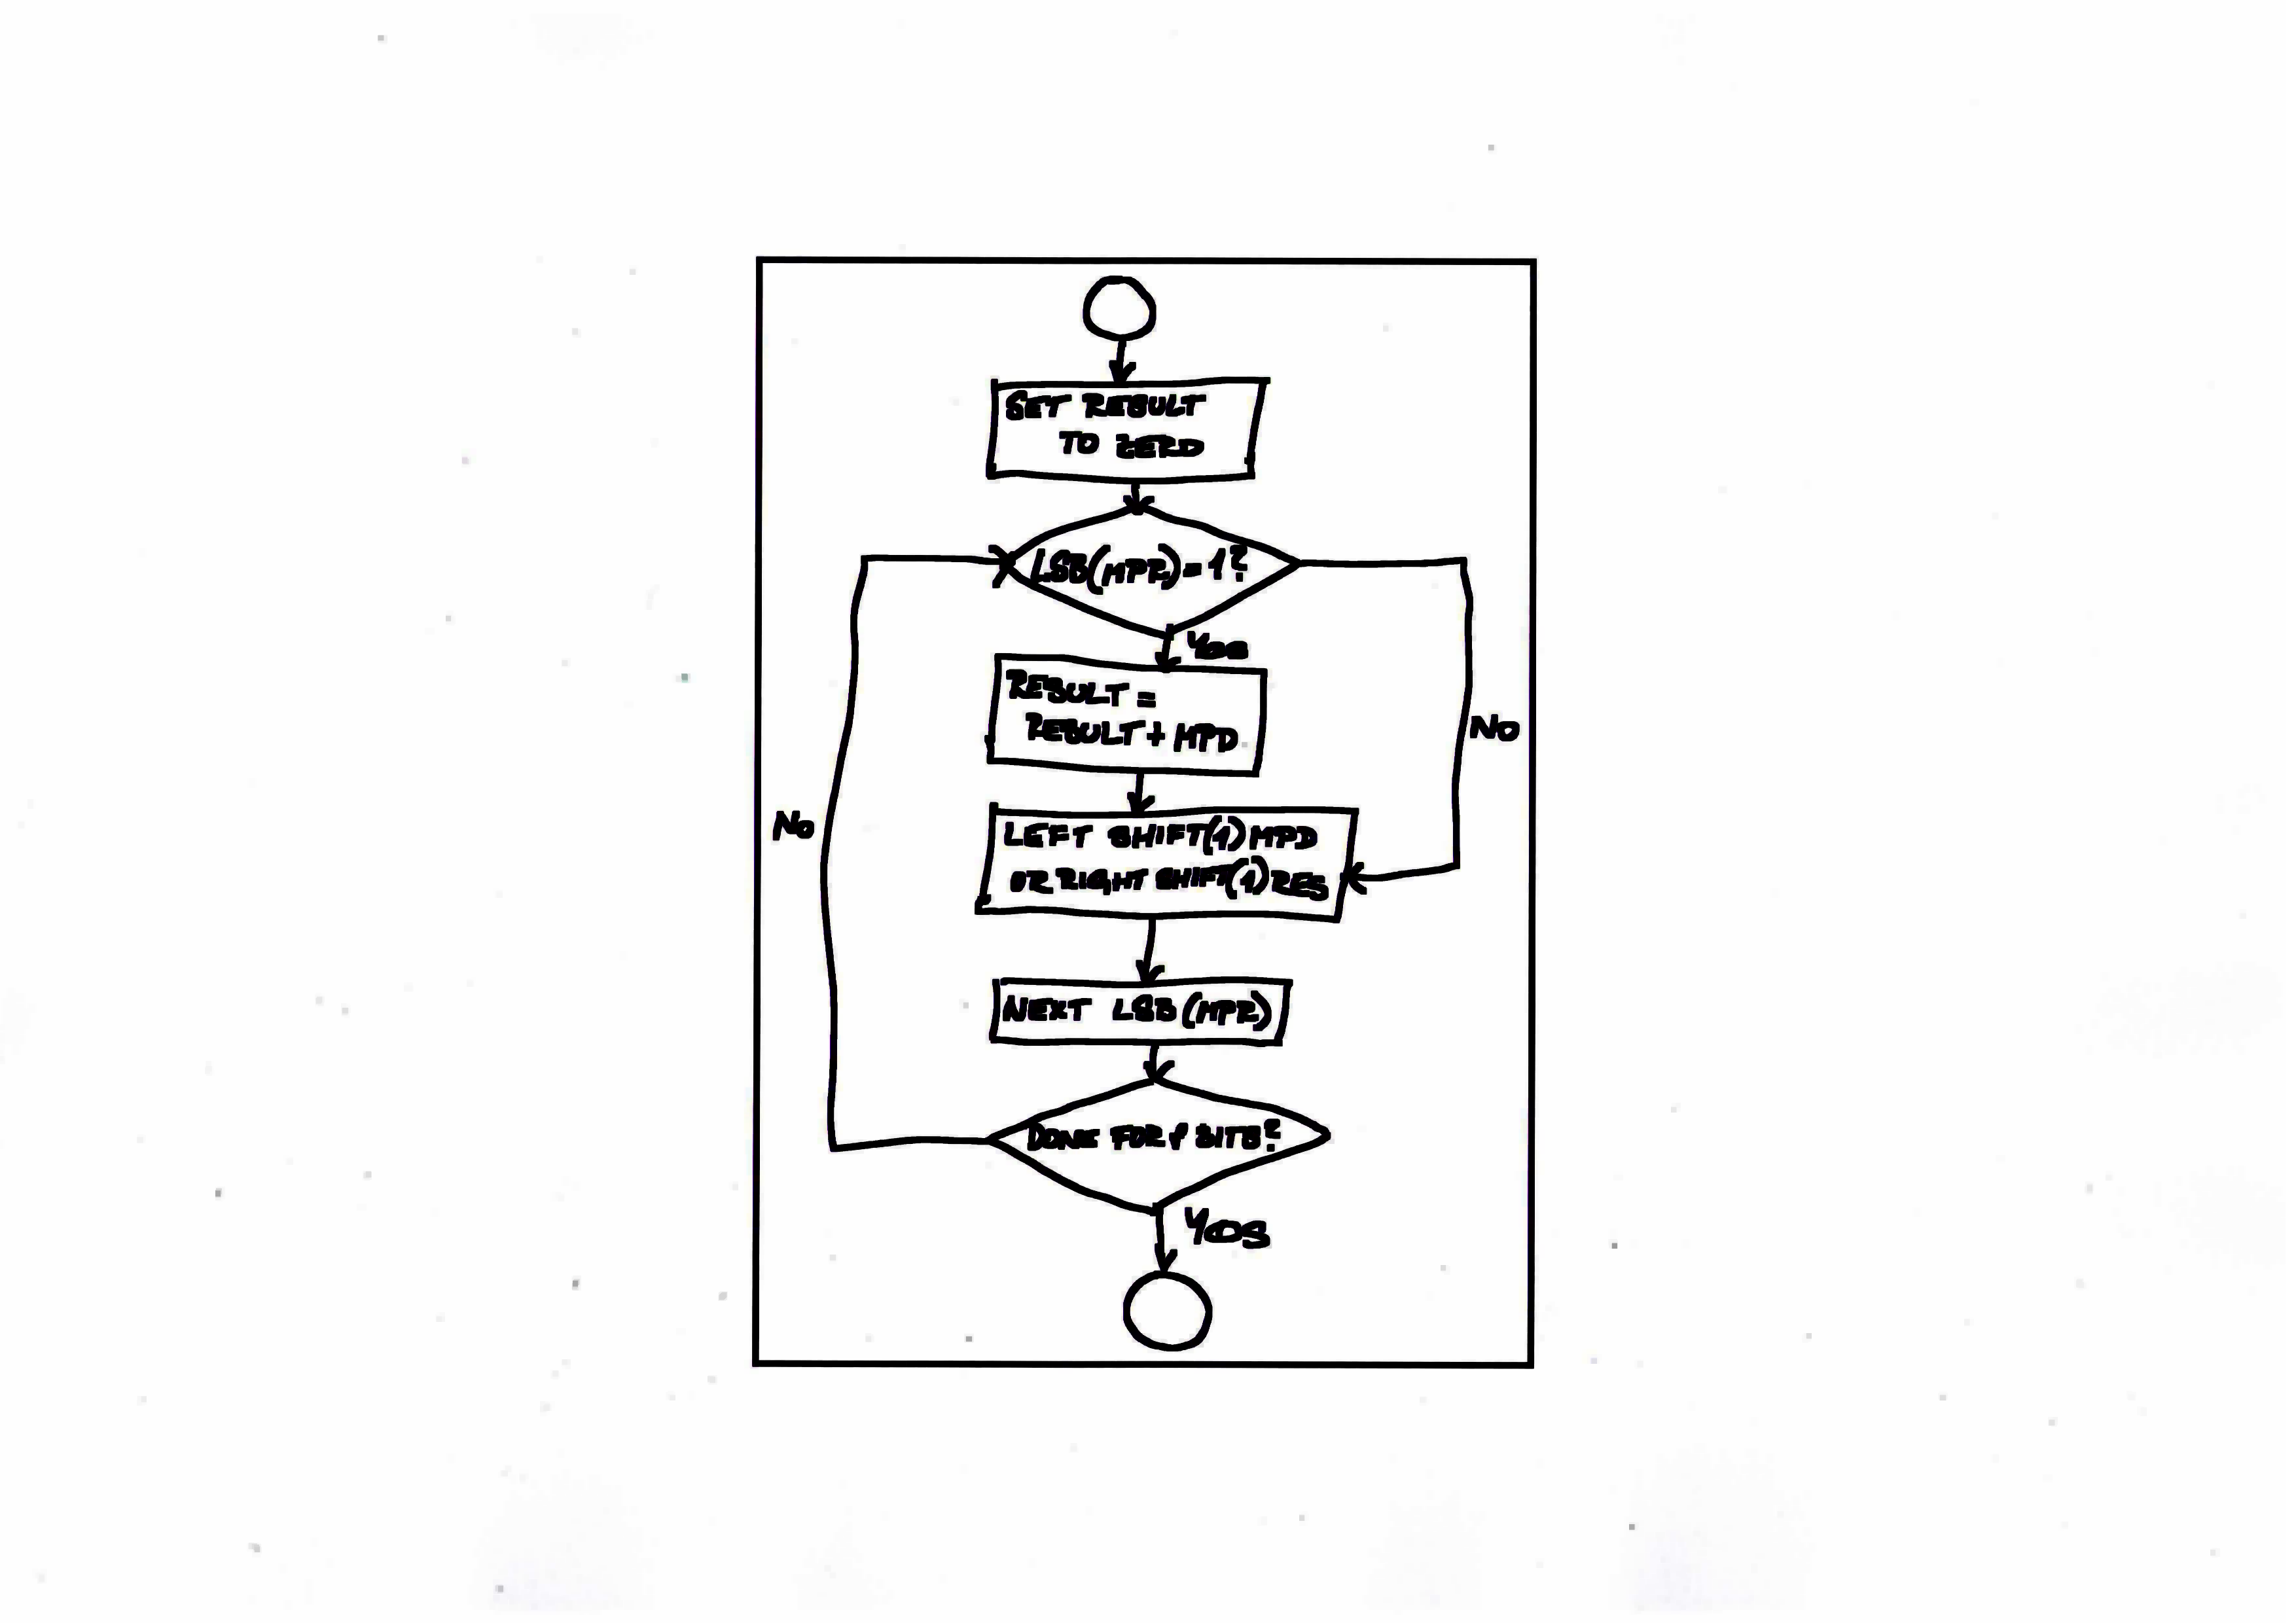 SET RESULT
TO ZERO
LSB(MPR)=1?
Yes
RESULT =
RESULT + MPD
No
No
LEFT SHIFT(1) MPD
OR RIGHT SHIFT(1) RES
NEXT LSB (MPR)
DONE FOR BITS?
Yes